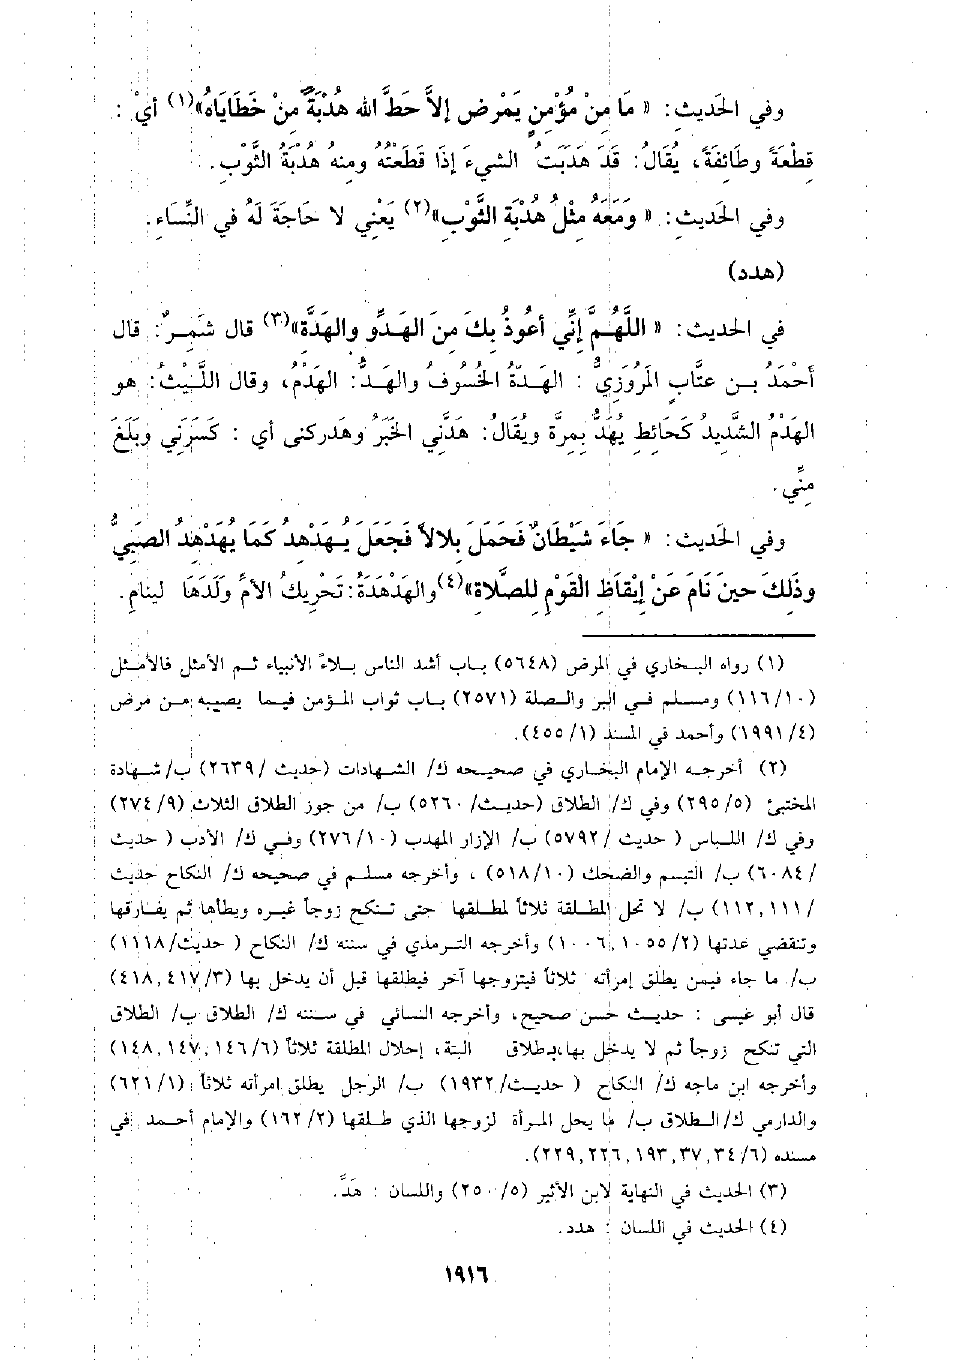 وفي الحَديثِ: « مَا مِنْ مُؤْمنٍ يَمْرض إلاَّ حَطَّ الله هُدْبَةً منْ خَطَايَاهُ»(١) أيْ :
قِطْعَةً وطَائفَةً، يُقَالُ: قَدَ هَدَبَتُ الشيءَ إذَا قَطَعْتُهُ ومنهُ هُدْبَةُ الثَّوْبِ.
وفي الحَديثِ: « وَمَعَهُ مثْلُ هُدْبَة الثَّوْب»(٢) يَعْنِي لا حَاجَةَ لَهُ في النِّسَاءِ.
(هدد)
في الحَديثِ: « اللَّهُمَّ إنِّي أعُوذُ بِكَ منَ الهَدِّو والهَدَّة»(٣) قال شَمِرٌ: قال
أَحْمَدُ بن عتَّابٍ المَرْوَزِيُّ : الهَدّةُ الخُسُوفُ والهَدُّ: الهَدْمُ، وقال اللَّيْثُ: هو
الهَدْمُ الشَّدِيدُ كَحَائطِ يُهَدُّ بِمرَّة ويُقَالُ: هَدَّنِي الخَبَرُ وهَدركنى أي : كَسَرَنِي وبَلَغَ
مِنِّي.
وفي الحَديثِ: « جَاءَ شَيْطَانٌ فَحَمَلَ بِلالاً فَجَعَلَ يُهَدْهدُ كَمَا يُهَدْهدُ الصَبِيُّ
وذَلِكَ حينَ نَامَ عَنْ إيْقَاظِ القَوْمِ للصَّلاة»(٤) والهَدْهَدَةُ: تَحْرِيكُ الأمِّ ولَدَهَا لينامِ.
(١) رواه البخاري في المرض (٥٦٤٨) باب أشد الناس بلاءً الأنبياء ثم الأمثل فالأمثل
(١١٦/١٠) ومسلم في البر والصلة (٢٥٧١) باب ثواب المؤمن فيما يصيبه من مرض
(١٩٩١/٤) وأحمد في المسند (٤٥٥/١).
(٢) أخرجه الإمام البخاري في صحيحه ك/ الشهادات (حديث /٢٦٣٩) ب/ شهادة
المختبئ (٢٩٥/٥) وفي ك/ الطلاق (حديث/ ٥٢٦٠) ب/ من جوز الطلاق الثلاث (٢٧٤/٩)
وفي ك/ اللباس ( حديث /٥٧٩٢) ب/ الإزار المهدب (٢٧٦/١٠) وفي ك/ الأدب ( حديث
/٦٠٨٤) ب/ التبسم والضحك (٥١٨/١٠) ، وأخرجه مسلم في صحيحه ك/ النكاح حديث
/١١٢,١١١) ب/ لا تحل المطلقة ثلاثاً لمطلقها حتى تنكح زوجاً غيره ويطأها ثم يفارقها
وتنقضي عدتها (١٠٠٦,١٠٥٥/٢) وأخرجه الترمذي في سننه ك/ النكاح ( حديث/١١١٨)
ب/ ما جاء فيمن يطلق إمرأته ثلاثاً فيتزوجها آخر فيطلقها قبل أن يدخل بها (٤١٨,٤١٧/٣)
قال أبو عيسى : حديث حسن صحيح، وأخرجه النسائي في سننه ك/ الطلاق ب/ الطلاق
التي تنكح زوجاً ثم لا يدخل بها، بطلاق البتة، إحلال المطلقة ثلاثاً (١٤٨,١٤٧,١٤٦/٦)
وأخرجه ابن ماجه ك/ النكاح ( حديث/١٩٣٢) ب/ الرجل يطلق امرأته ثلاثاً (٦٢١/١)
والدارمي ك/ الطلاق ب/ ما يحل المرأة لزوجها الذي طلقها (١٦٢/٢) والإمام أحمد في
مسنده (٢٢٩,٢٢٦,١٩٣,٣٧,٣٤/٦).
(٣) الحديث في النهاية لابن الأثير (٢٥٠/٥) واللسان : هَدَّ.
(٤) الحديث في اللسان : هدد.
١٩١٦